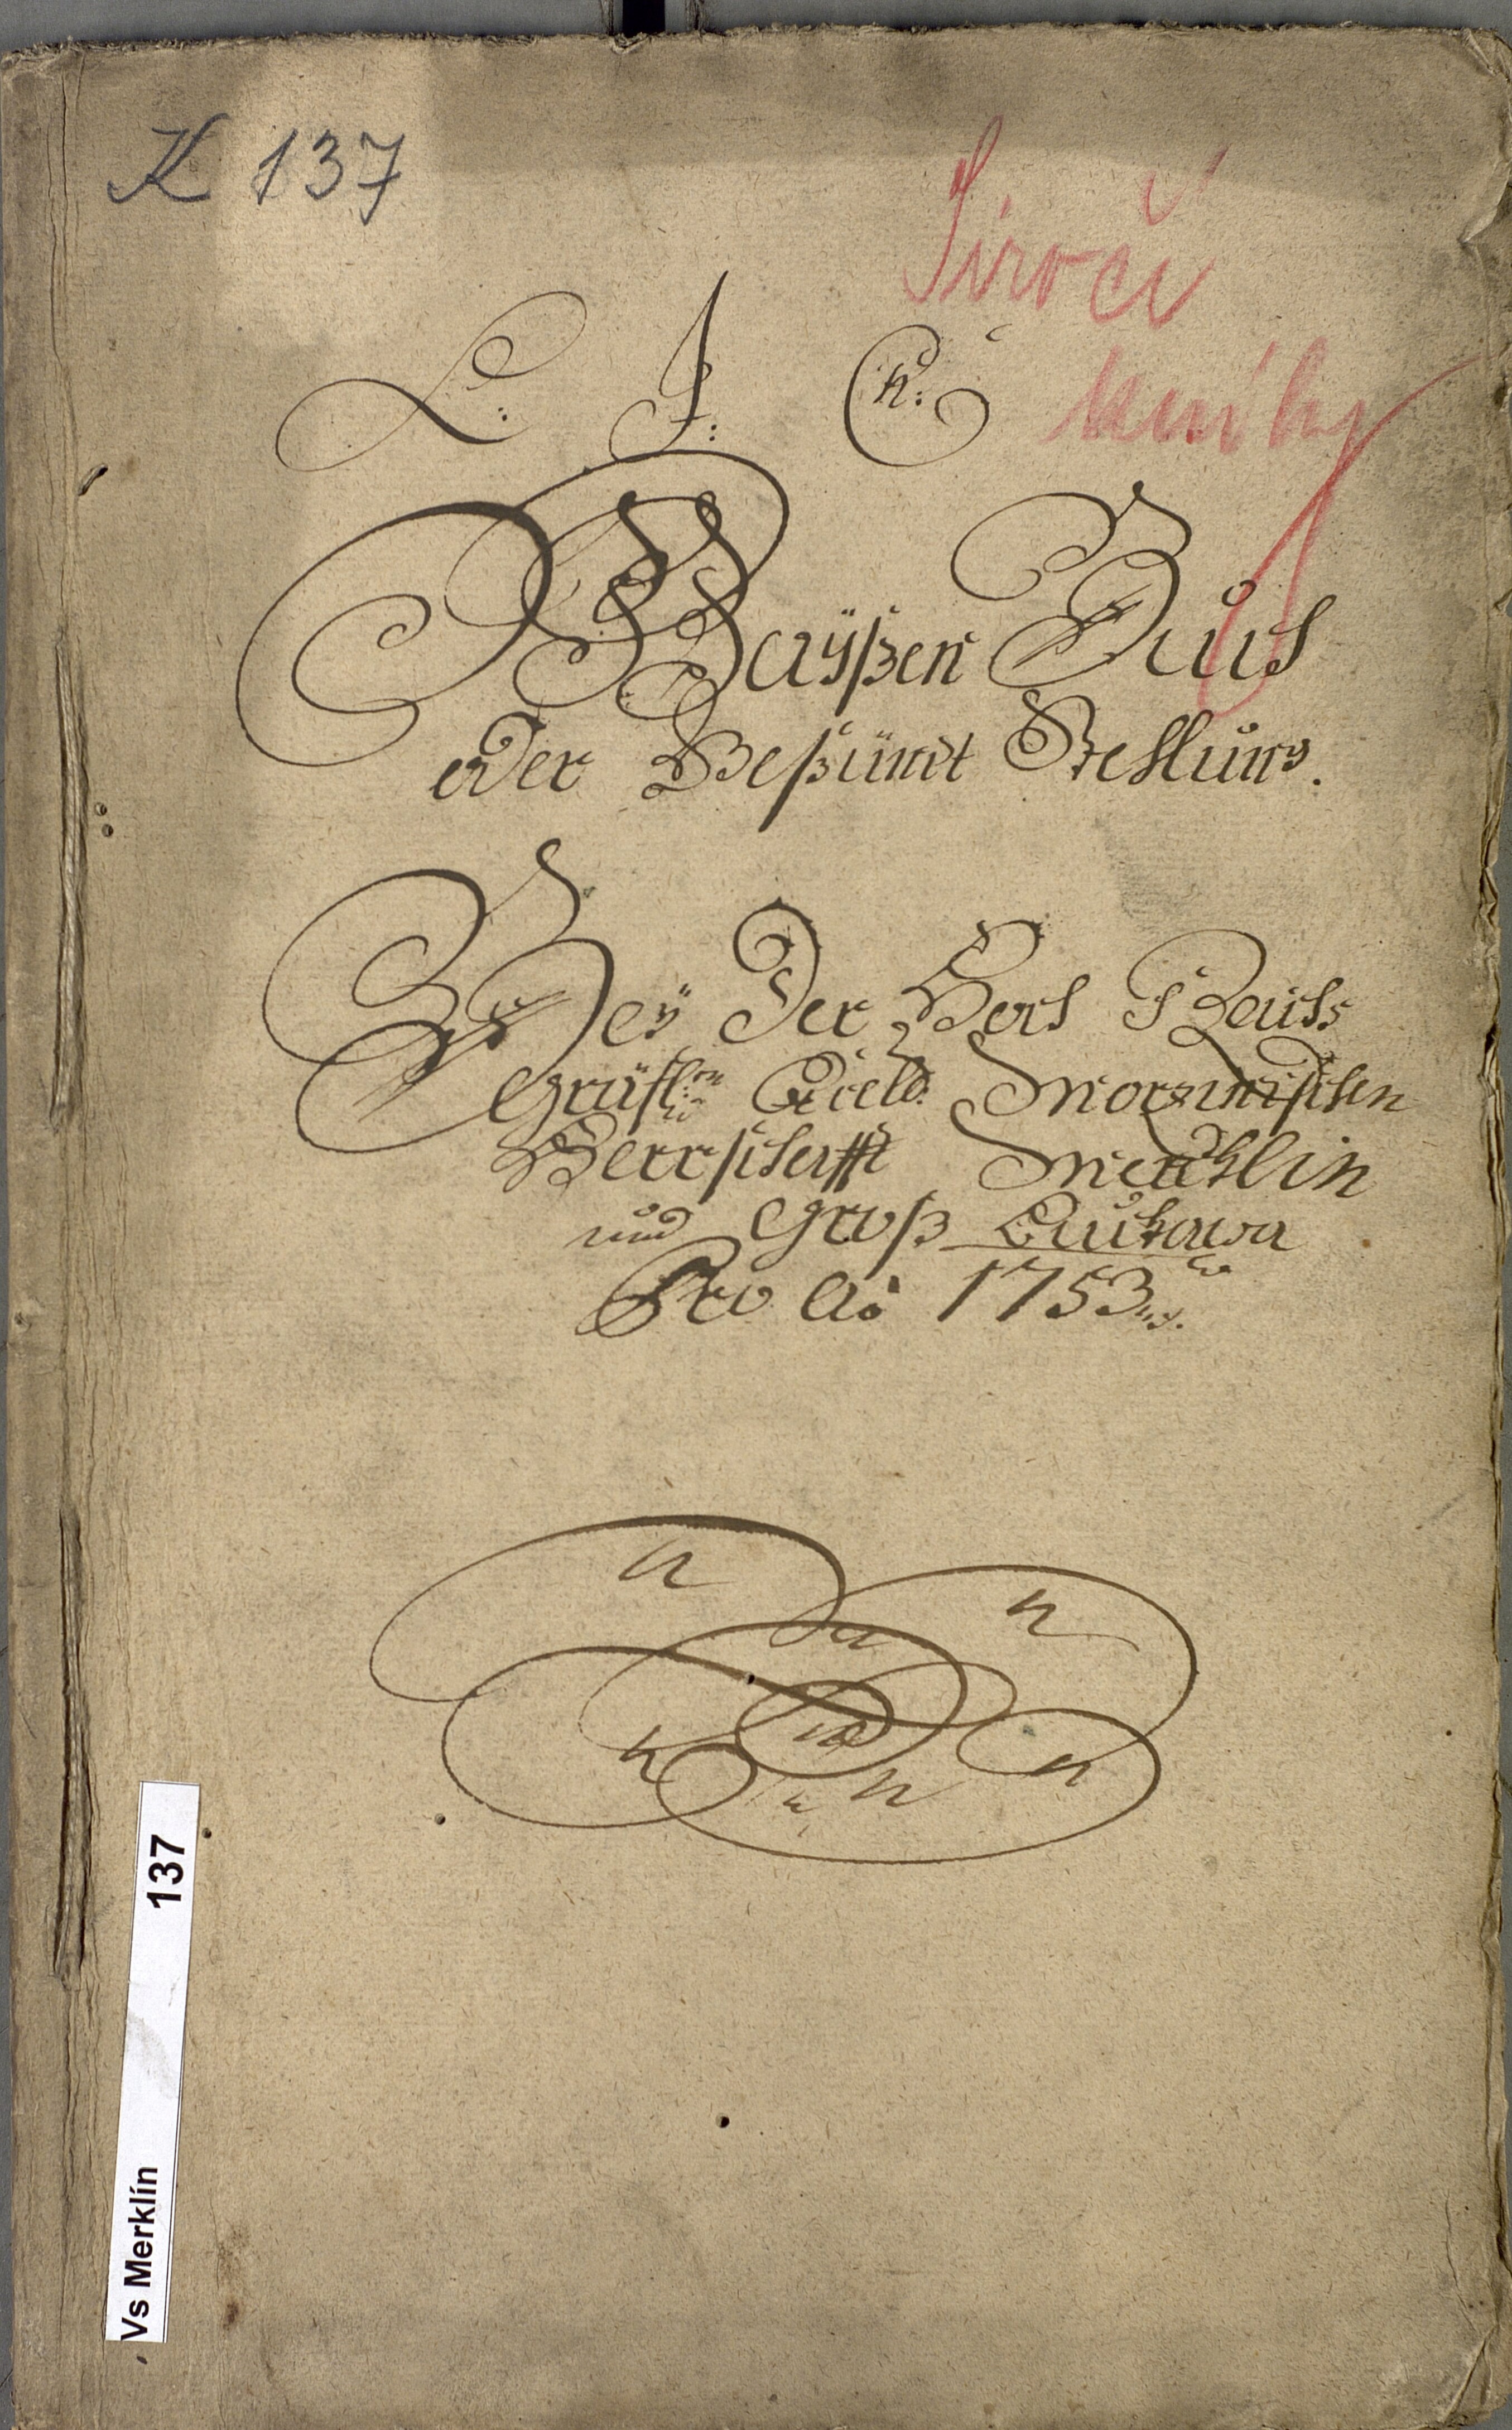 K 137
Siročí
knihy
L: J: C
Waÿßen Buch
oder Beßündt Stellung.
Beÿ Der Hoch
Gräfl: Morzinischen
Herrschafft Merklin
und Groß Lukawa
Pro Aõ 1753
Vs Merklín 137